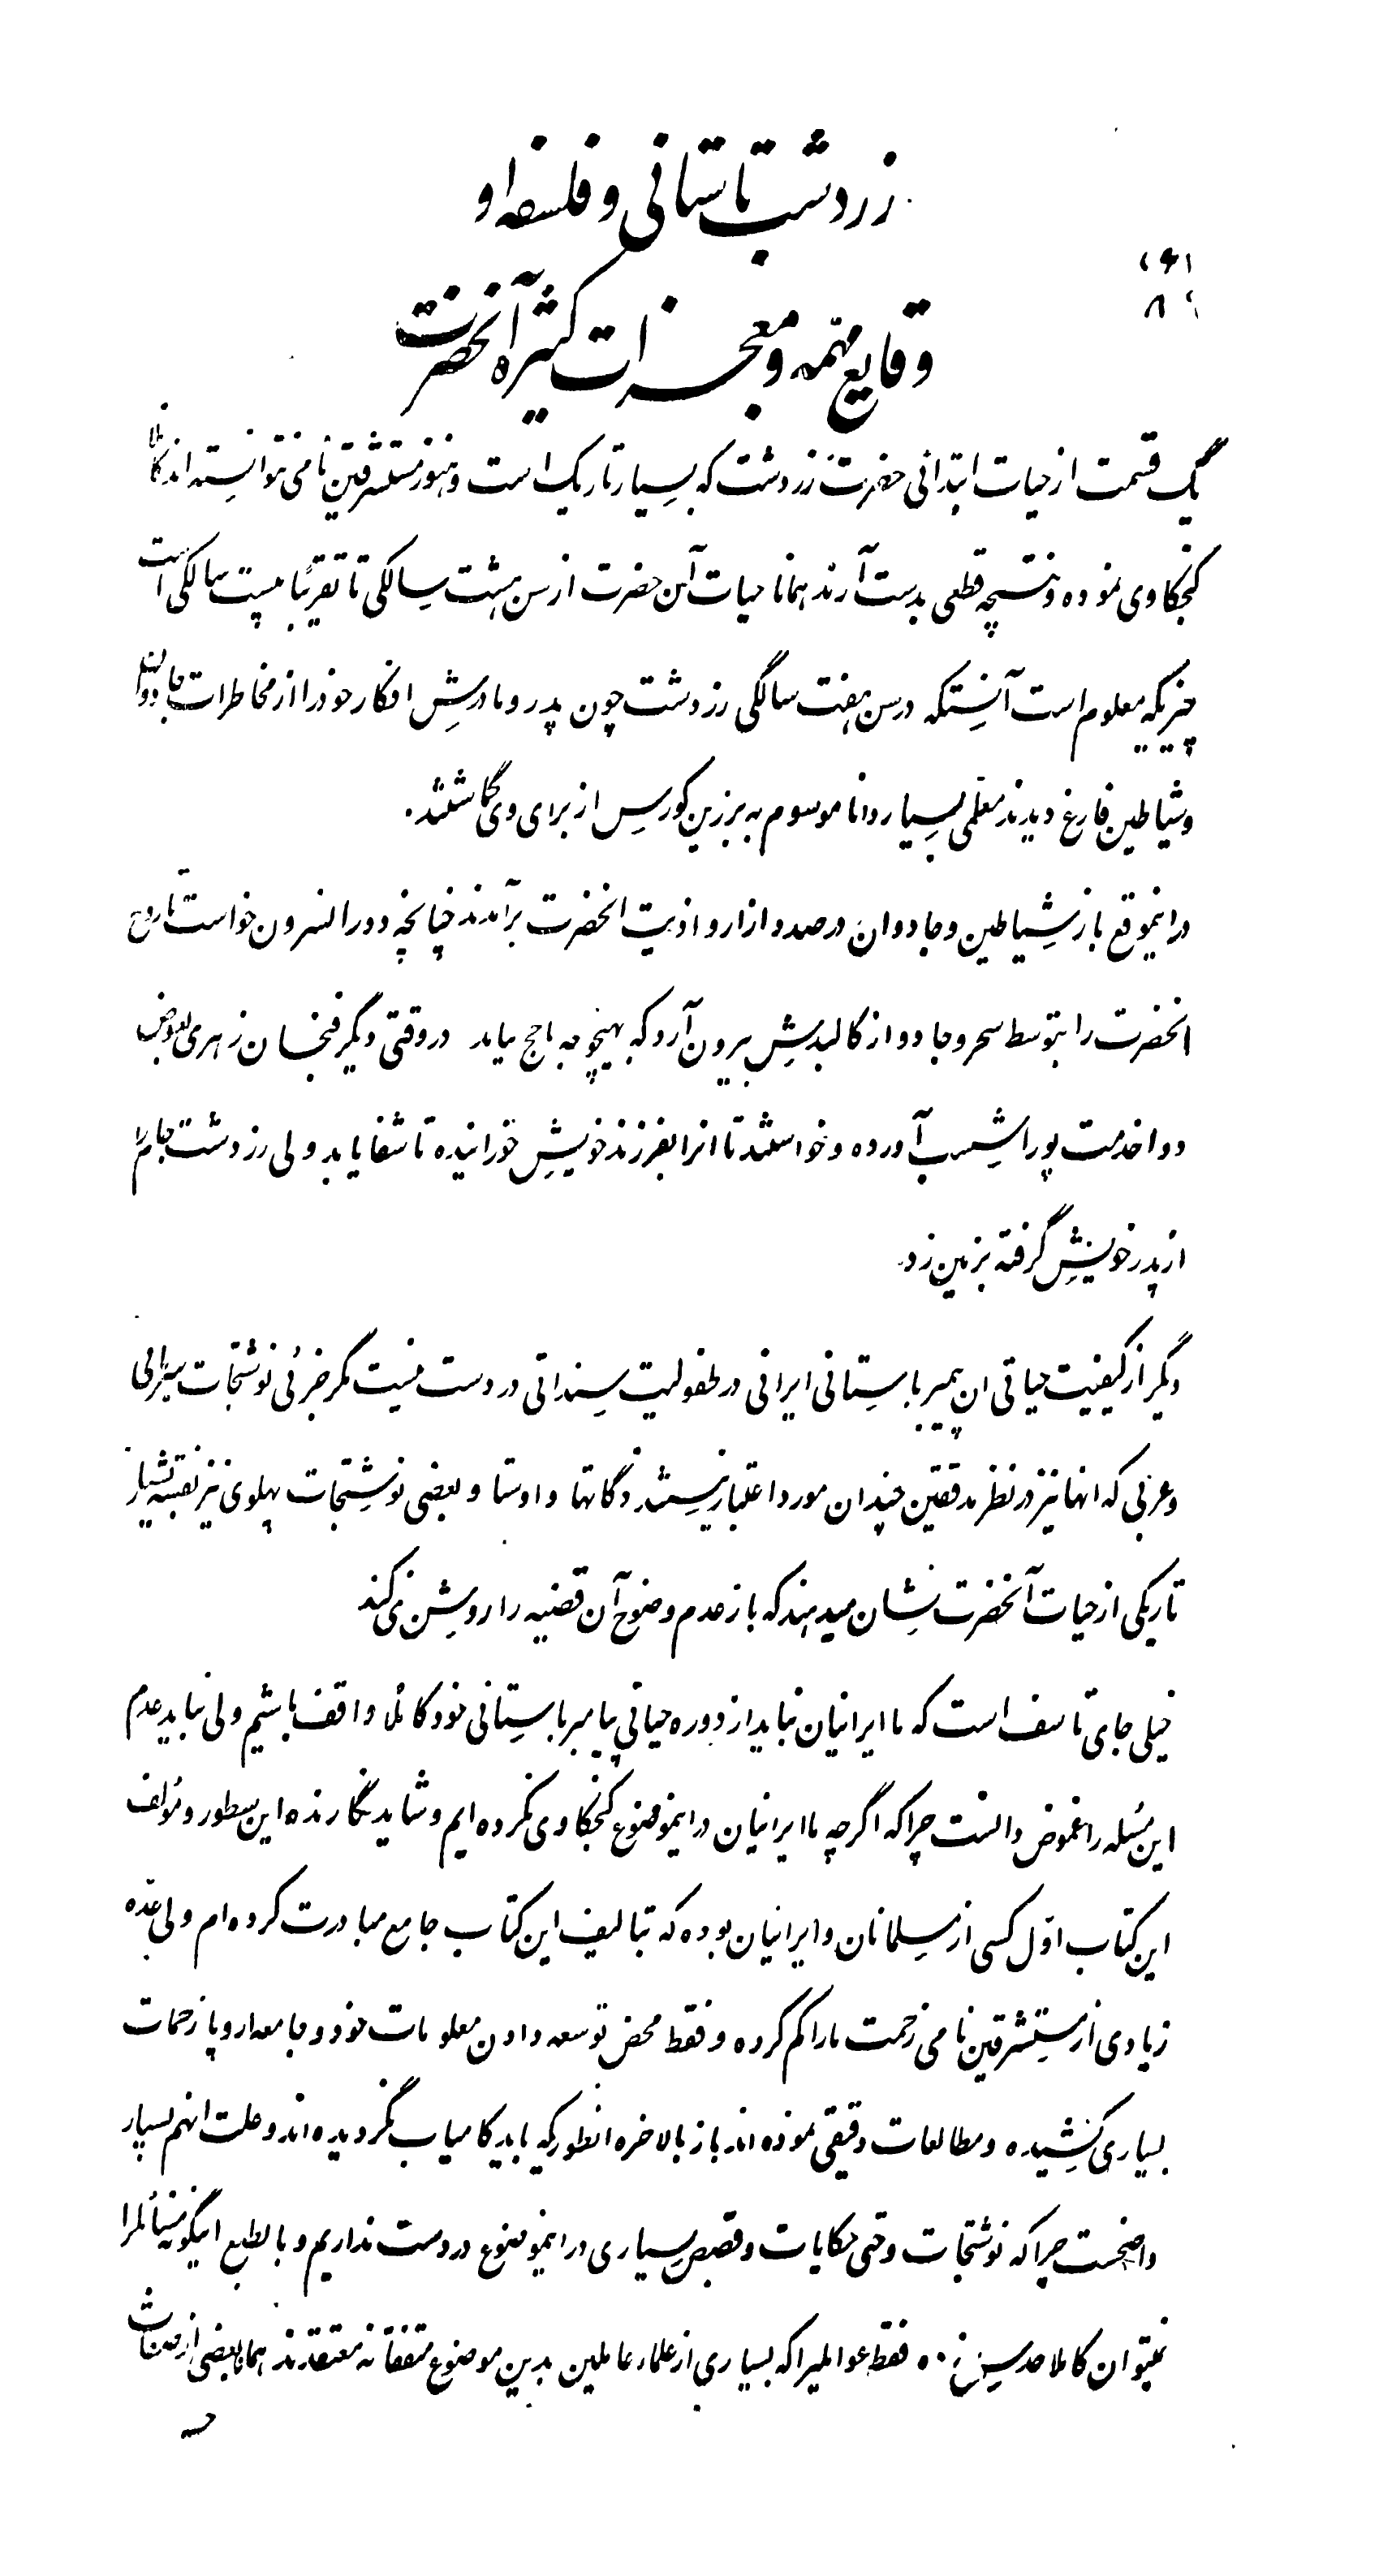 زردشت باستانی و فلسفه او
وقایع مهمه و معجزات کثیره آنحضرت
یک قسمت از حیات ابتدائی حضرت زردشت که بسیار تاریک است و هنوز مستشرقین نامی نتوانسته اند کاملا
کنجکاوی نموده و نتیجه قطعی بدست آرند همانا حیات آن حضرت از سن هشت سالگی تا تقریبًا بیست سالگی است
چیزیکه معلوم است آنستکه در سن هفت سالگی زردشت چون پدر و مادرش افکار خود را از مخاطرات جادوان
و شیاطین فارغ دیدند معلمی بسیار دانا موسوم به برزین کورس از برای وی گماشتند.
در اینموقع باز شیاطین و جادوان در صدد ازار و اذیت انحضرت برآمدند چنانچه دوراسرون خواست تا روح
انحضرت را بتوسط سحر و جادو از کالبدش بیرون آرد که بهیچوجه باج نیاید در وقتی دیگر فنجان زهری بعوض
دوا خدمت پوراشسب آورده و خواستند تا انرا بفرزند خویش خورانیده تا شفا یابد ولی زردشت جام را
از پدر خویش گرفته بزمین زد
دیگر از کیفیت حیاتی ان پیمبر باستانی ایرانی در طفولیت سنداتی در دست نیست مگر جزئی نوشتجات
و عربی که انها نیز در نظر مدققین چندان مورد اعتبار نیستند و گاتها و اوستا و بعضی نوشتجات پهلوی نیز
تاریکی از حیات آنحضرت نشان میدهند که باز عدم وضوح آن قضیه را روشن می کند
خیلی جای تاسف است که ما ایرانیان نباید از دوره حیاتی پیامبر باستانی خود کاملًا واقف باشیم ولی نباید عدم
این مسٔله را غموض دانست چراکه اگرچه ما ایرانیان در اینموضوع کنجکاوی نکرده ایم و شاید نگارنده این سطور و مؤلف
این کتاب اوّل کسی از مسلمانان و ایرانیان بوده که بتالیف این کتاب جامع مبادرت کرده ام ولی عدّه
زیادی از مستشرقین نامی زحمت ما را کم کرده و فقط محض توسعه دادن معلومات خود و جامعه اروپا زحمات
بسیاری کشیده و مطالعات دقیقی نموده اند باز بالاخره انطوریکه باید کامیاب نگردیده اند و علت انهم بسیار
واضحست چراکه نوشتجات و حتی حکایات و قصص بسیاری در اینموضوع در دست نداریم و بالطبع اینگونه مسٔائلرا
نمیتوان کاملا حدس زده فقط عوالمیرا که بسیاری از علماء عاملین بدین موضوع متفقانه معتقدند همانا بعضی از